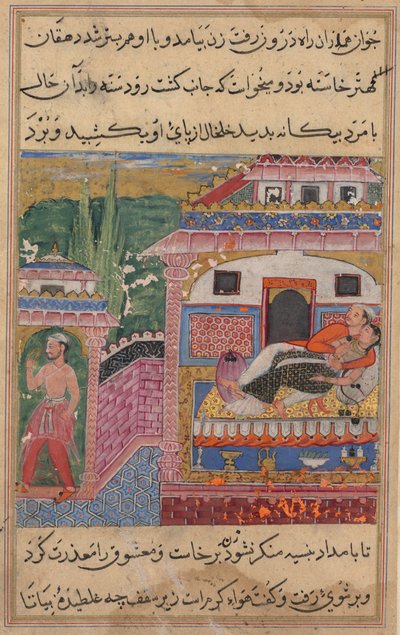 جوان همدران راه درون رفت زن بیامد و با او هم بستر شد دهقان
مهتر خاسته بود و میخواست که جانب کشت رود دسته را بدان حال
با مرد بیکانه بدید خلخال از پای او بکشید و برد
تا بامداد منکر نشود زن برخاست و معشوق را معذرت کرد
و بر شوی رفت و کفت هواء کرم است زیر سقف چه غلطیدهٔ بیا تا